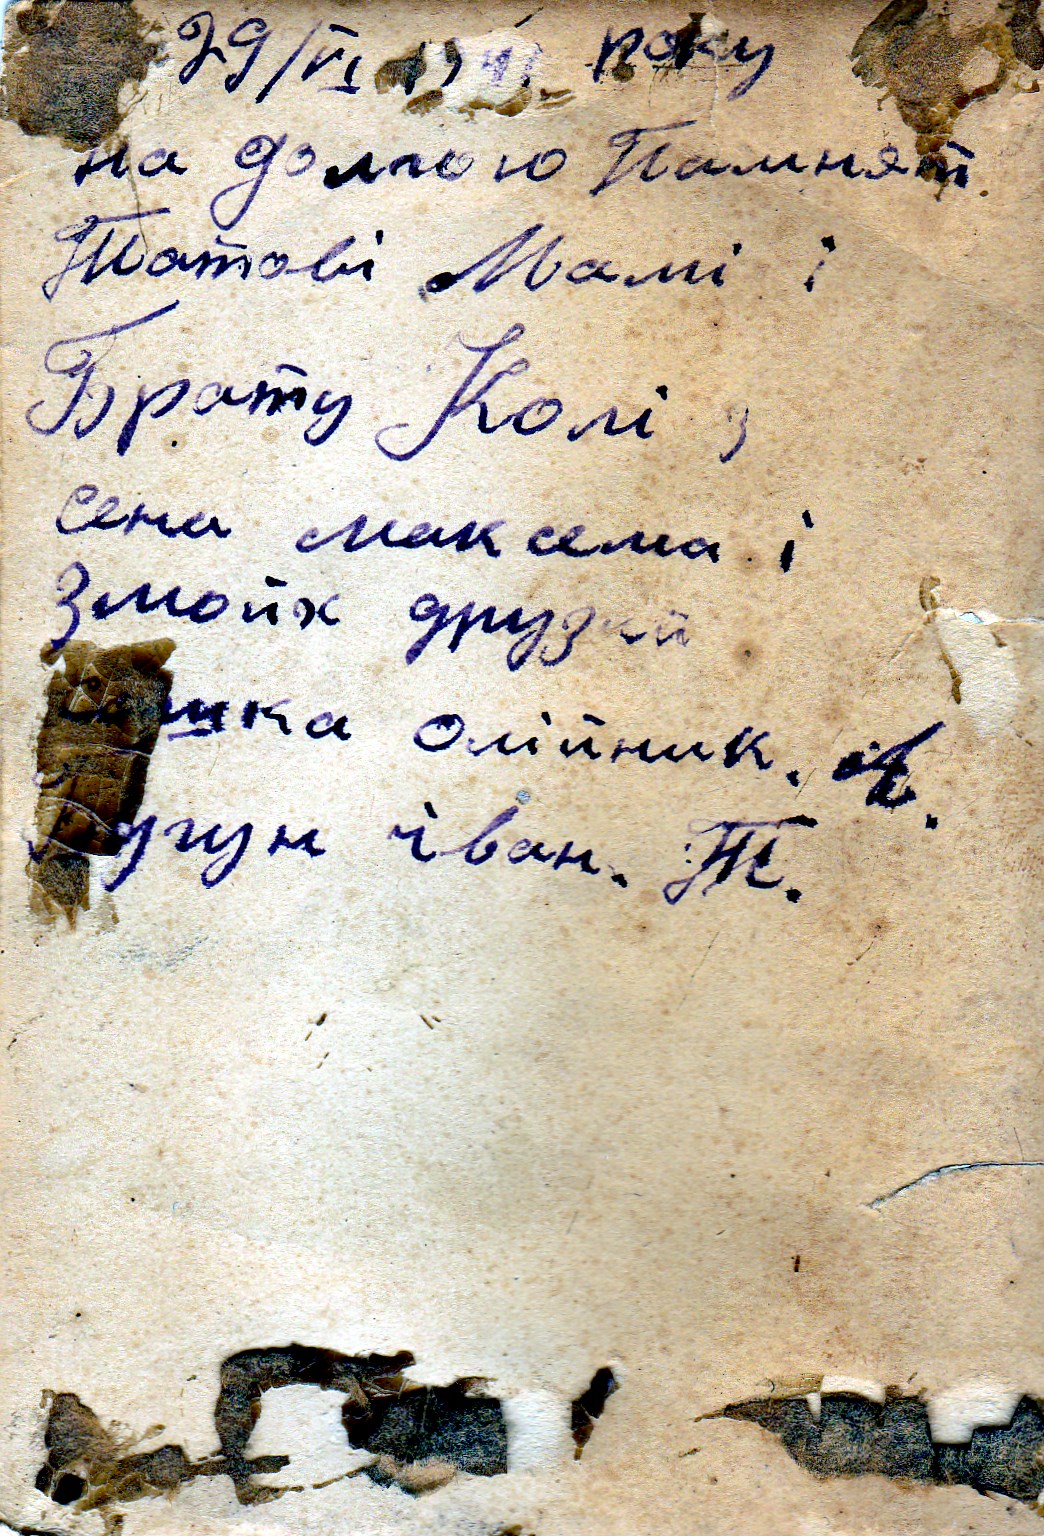 29/VI 194 року
на долгою Памнят
Татові Мамі і
Брату Колі з
сена максема і
змойх друзки
шка олійник. А.
угун іван. Т.